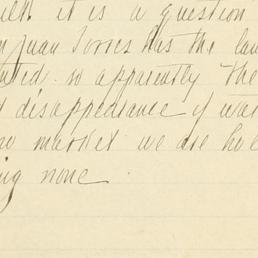 it is a question
Juan Torres has the law
so apparently the
disappearance of wat
market we are hol
ing none